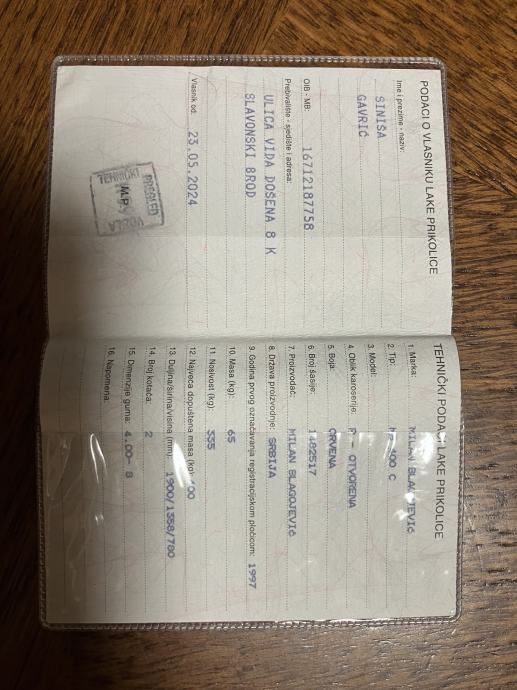 PODACI O VLASNIKU LAKE PRIKOLICE
Ime i prezime - naziv:
SINIŠA
GAVRIĆ
OIB - MB: 16712187758
Prebivalište - sjedište i adresa:
ULICA VIDA DOŠENA 8 K
SLAVONSKI BROD
Vlasnik od: 23.05.2024
TEHNIČKI
PREGLED
M.P.
TEHNIČKI PODACI LAKE PRIKOLICE
1. Marka: MILAN BLAGOJEVIĆ
2. Tip: 400 C
3. Model:
4. Oblik karoserije: OTVORENA
5. Boja: CRVENA
6. Broj šasije: 1482517
7. Proizvođač: MILAN BLAGOJEVIĆ
8. Država proizvodnje: SRBIJA
9. Godina prvog označavanja registracijskom pločicom: 1997
10. Masa (kg): 65
11. Nosivost (kg): 335
12. Najveća dopuštena masa (kg):
13. Duljina/širina/visina (mm): 1900/1358/780
14. Broj kotača: 2
15. Dimenzije guma: 4.00- 8
16. Napomena: